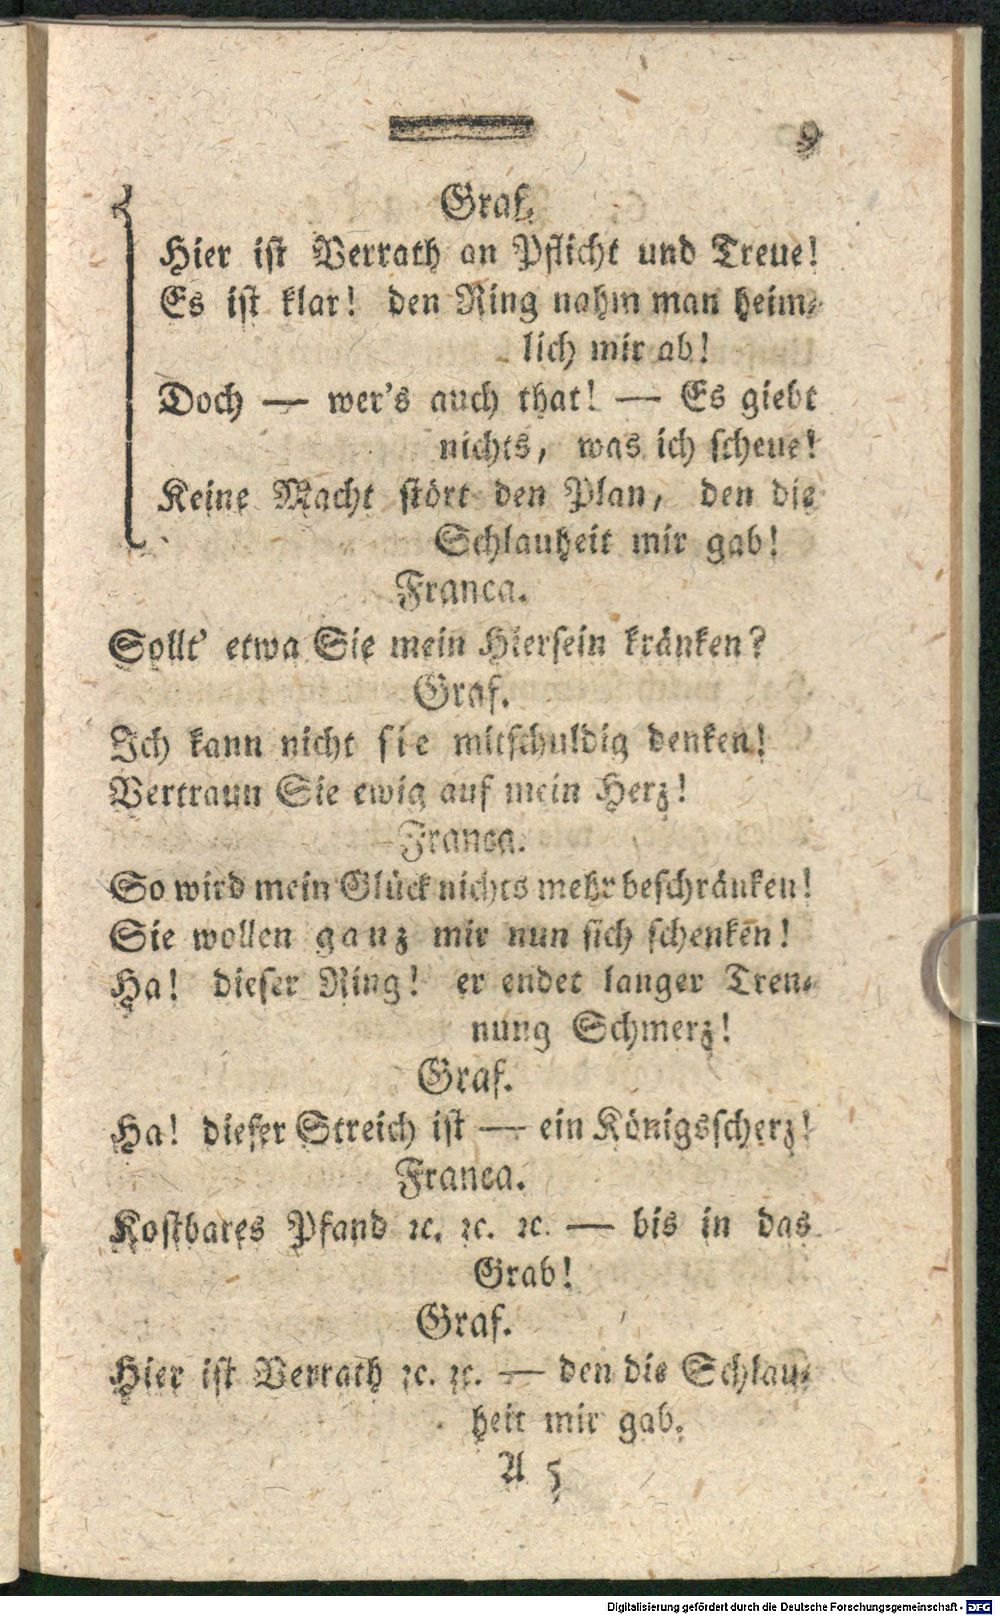 9
Graf.
Hier ist Verrath an Pflicht und Treue!
Es ist klar! den Ring nahm man heim⸗
lich mir ab!
Doch — wer's auch that! — Es giebt
nichts, was ich scheue!
Keine Macht stört den Plan, den die
Schlauheit mir gab!
Franca.
Sollt' etwa Sie mein Hiersein kränken?
Graf.
Ich kann nicht sie mitschuldig denken!
Vertraun Sie ewig auf mein Herz!
Franca.
So wird mein Glück nichts mehr beschränken!
Sie wollen ganz mir nun sich schenken!
Ha! dieser Ring! er endet langer Tren⸗
nung Schmerz!
Graf.
Ha! dieser Streich ist — ein Königsscherz!
Franca.
Kostbares Pfand ꝛc. ꝛc. ꝛc. — bis in das
Grab!
Graf.
Hier ist Verrath ꝛc. ꝛc. — den die Schlau⸗
heit mir gab.
A 5
Digitalisierung gefördert durch die Deutsche Forschungsgemeinschaft - DFG